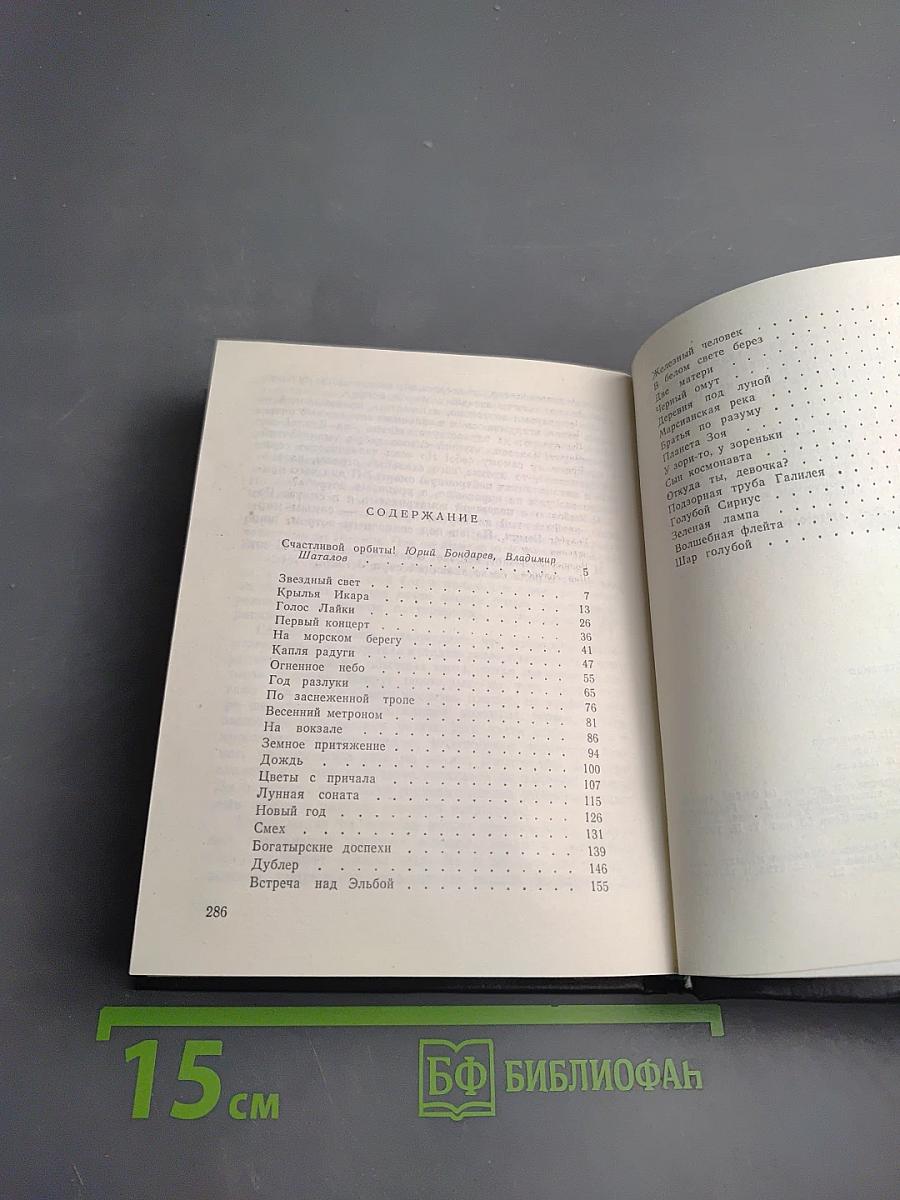 СОДЕРЖАНИЕ
Счастливой орбиты! Юрий Бондарев, Владимир
Шаталов . . . . . . . . . . . . 5
Звездный свет . . . . . . . . . . . . 7
Крылья Икара . . . . . . . . . . . . 13
Голос Лайки . . . . . . . . . . . . 26
Первый концерт . . . . . . . . . . . . 36
На морском берегу . . . . . . . . . . 41
Капля радуги . . . . . . . . . . . . 47
Огненное небо . . . . . . . . . . . . 55
Год разлуки . . . . . . . . . . . . 65
По заснеженной тропе . . . . . . . . . 76
Весенний метроном . . . . . . . . . . 81
На вокзале . . . . . . . . . . . . 86
Земное притяжение . . . . . . . . . . 94
Дождь . . . . . . . . . . . . 100
Цветы с причала . . . . . . . . . . 107
Лунная соната . . . . . . . . . . . 115
Новый год . . . . . . . . . . . . 126
Смех . . . . . . . . . . . . 131
Богатырские доспехи . . . . . . . . . 139
Дублер . . . . . . . . . . . . 146
Встреча над Эльбой . . . . . . . . . 155
286
Железный человек . . . .
В белом свете берез . . . .
Две матери . . . .
Черный омут . . . .
Деревня под луной . . . .
Марсианская река . . . .
Братья по разуму . . . .
Планета Зоя . . . .
У зори-то, у зореньки . . . .
Сын космонавта . . . .
Откуда ты, девочка? . . . .
Подзорная труба Галилея . . . .
Голубой Сириус . . . .
Зеленая лампа . . . .
Волшебная флейта . . . .
Шар голубой . . . .
15 см
БФ БИБЛИОФАН